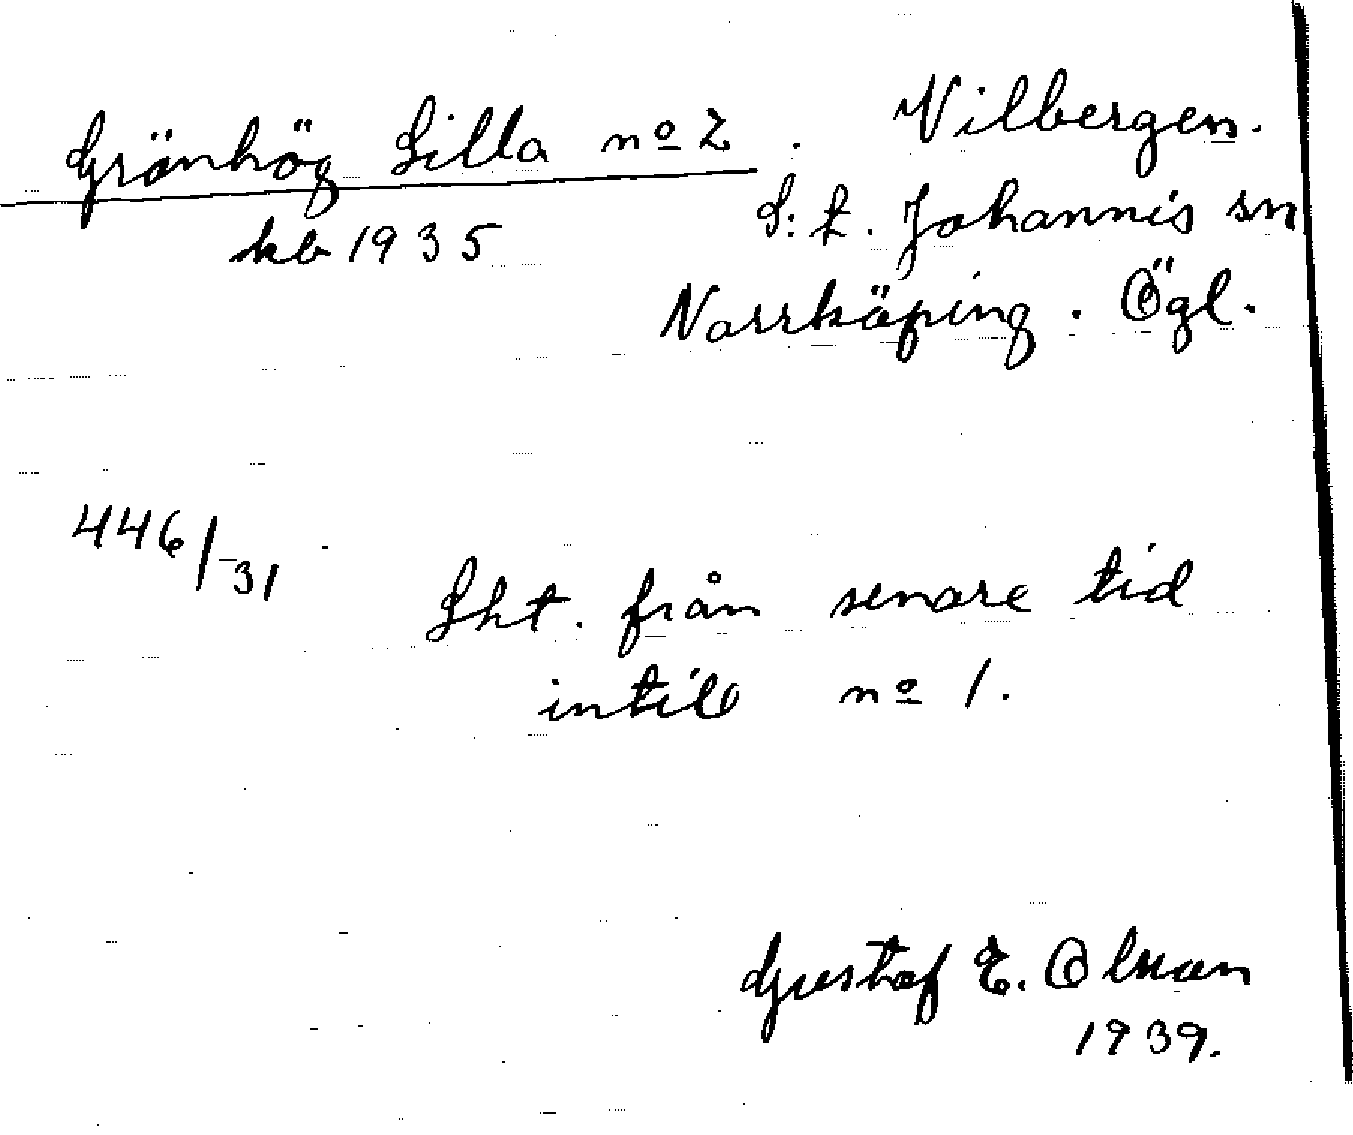 Grönhög Lilla nº 2. Vilbergen.
kb 1935 S:t. Johannis sn
Norrköping. Ögl.
446/31
Lht. från senare tid
intill nº 1.
Gustaf E. Olsson
1939.